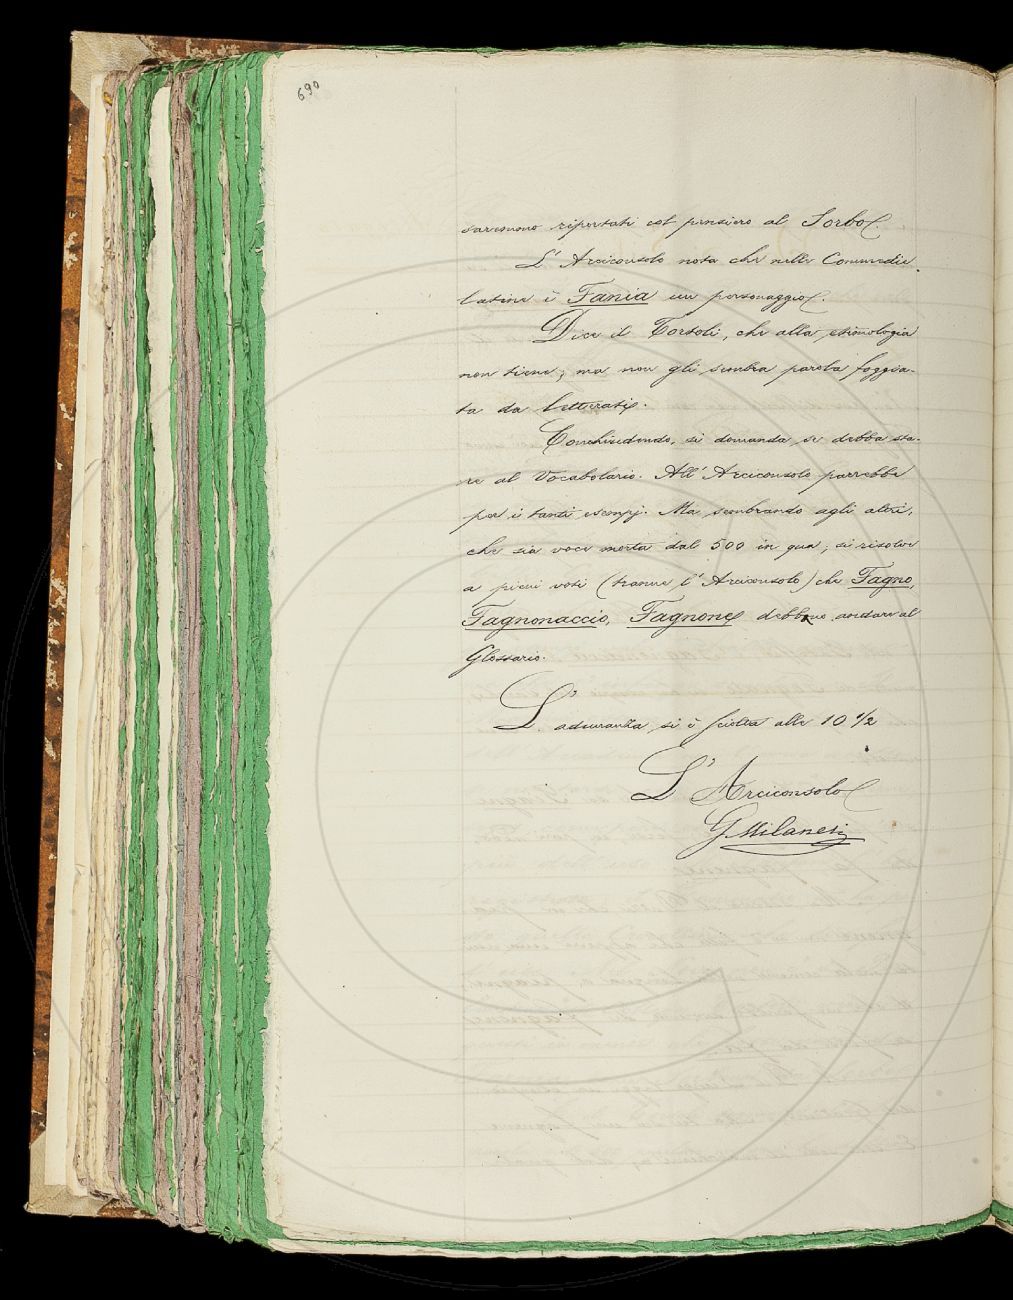 690
saremmo riportati col pensiero al Sorbo.
L'Arciconsolo nota che nelle Commedie
latine è Fania un personaggio.
Dice il Tortoli, che alla etimologia
non tiene; ma non gli sembra parola foggia-
ta da letterati.
Conchiudendo, si domanda se debba sta-
re al Vocabolario. All'Arciconsolo parrebbe
per i tanti esempj. Ma sembrando agli altri,
che sia voce morta dal 500 in qua, si risolve
a pieni voti (tranne l'Arciconsolo) che Fagno,
Fagnonaccio, Fagnone debbono andare al
Glossario.
L'adunanza si è sciolta alle 10 1/2
L'Arciconsolo
G Milanesi